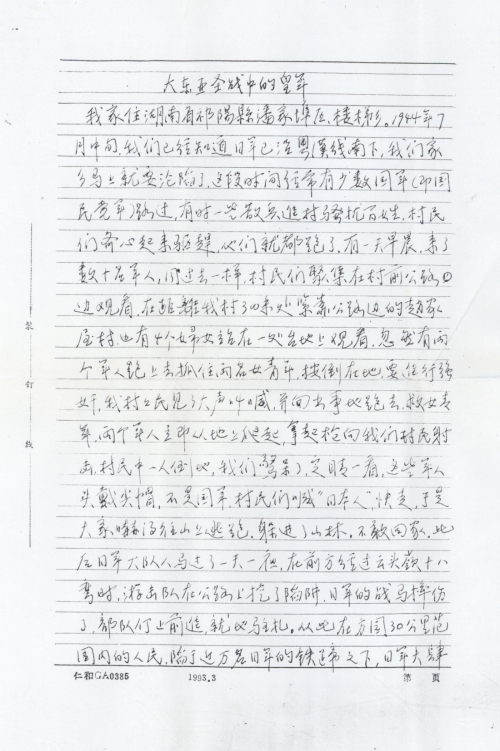 大东亚圣战中的皇军
我家住湖南省祁阳县潘家埠区、楼梯乡。1944年7
月中旬、我们已经知道日军已沿粤漢线南下,我们家
乡马上就要沦陷了,这段时间经常有少数国军(即国
民党军)路过,有时一些散兵進村骚扰百姓,村民
们齐心起来驱趕,他们就都跑了,有一天早晨,来了
数十名军人,同过去一样,村民们聚集在村前公路
边观看,在距離我村300来处紧靠公路边的赵家
屋村,也有4个婦女站在一处台地上观看,忽然有两
个军人跑上去抓住两名女青年,按倒在地,要進行强
奸,我村之民见了大声叫喊,并向出事地跑去,救女青
年,两个军人立即从地上爬起,拿起枪向我们村民射
击,村民中一人倒地,我们驚呆了,定睛一看,这些军人
头戴尖帽,不是国军,村民们叫喊"日本人"快走,于是
大家转沟往山上逃跑,躲進了山林,不敢回家,此
后日军大队人马过了一天一夜,在前方经过云头嶺十八
弯时,游击队在公路上挖了陷阱,日军的战马摔伤
了,部队停止前進,就地駐札。从此在方圆30公里范
围内的人民,陷于近万名日军的铁蹄之下,日军大肆
仁和GA0385 1993.3 第 页
装 订 线